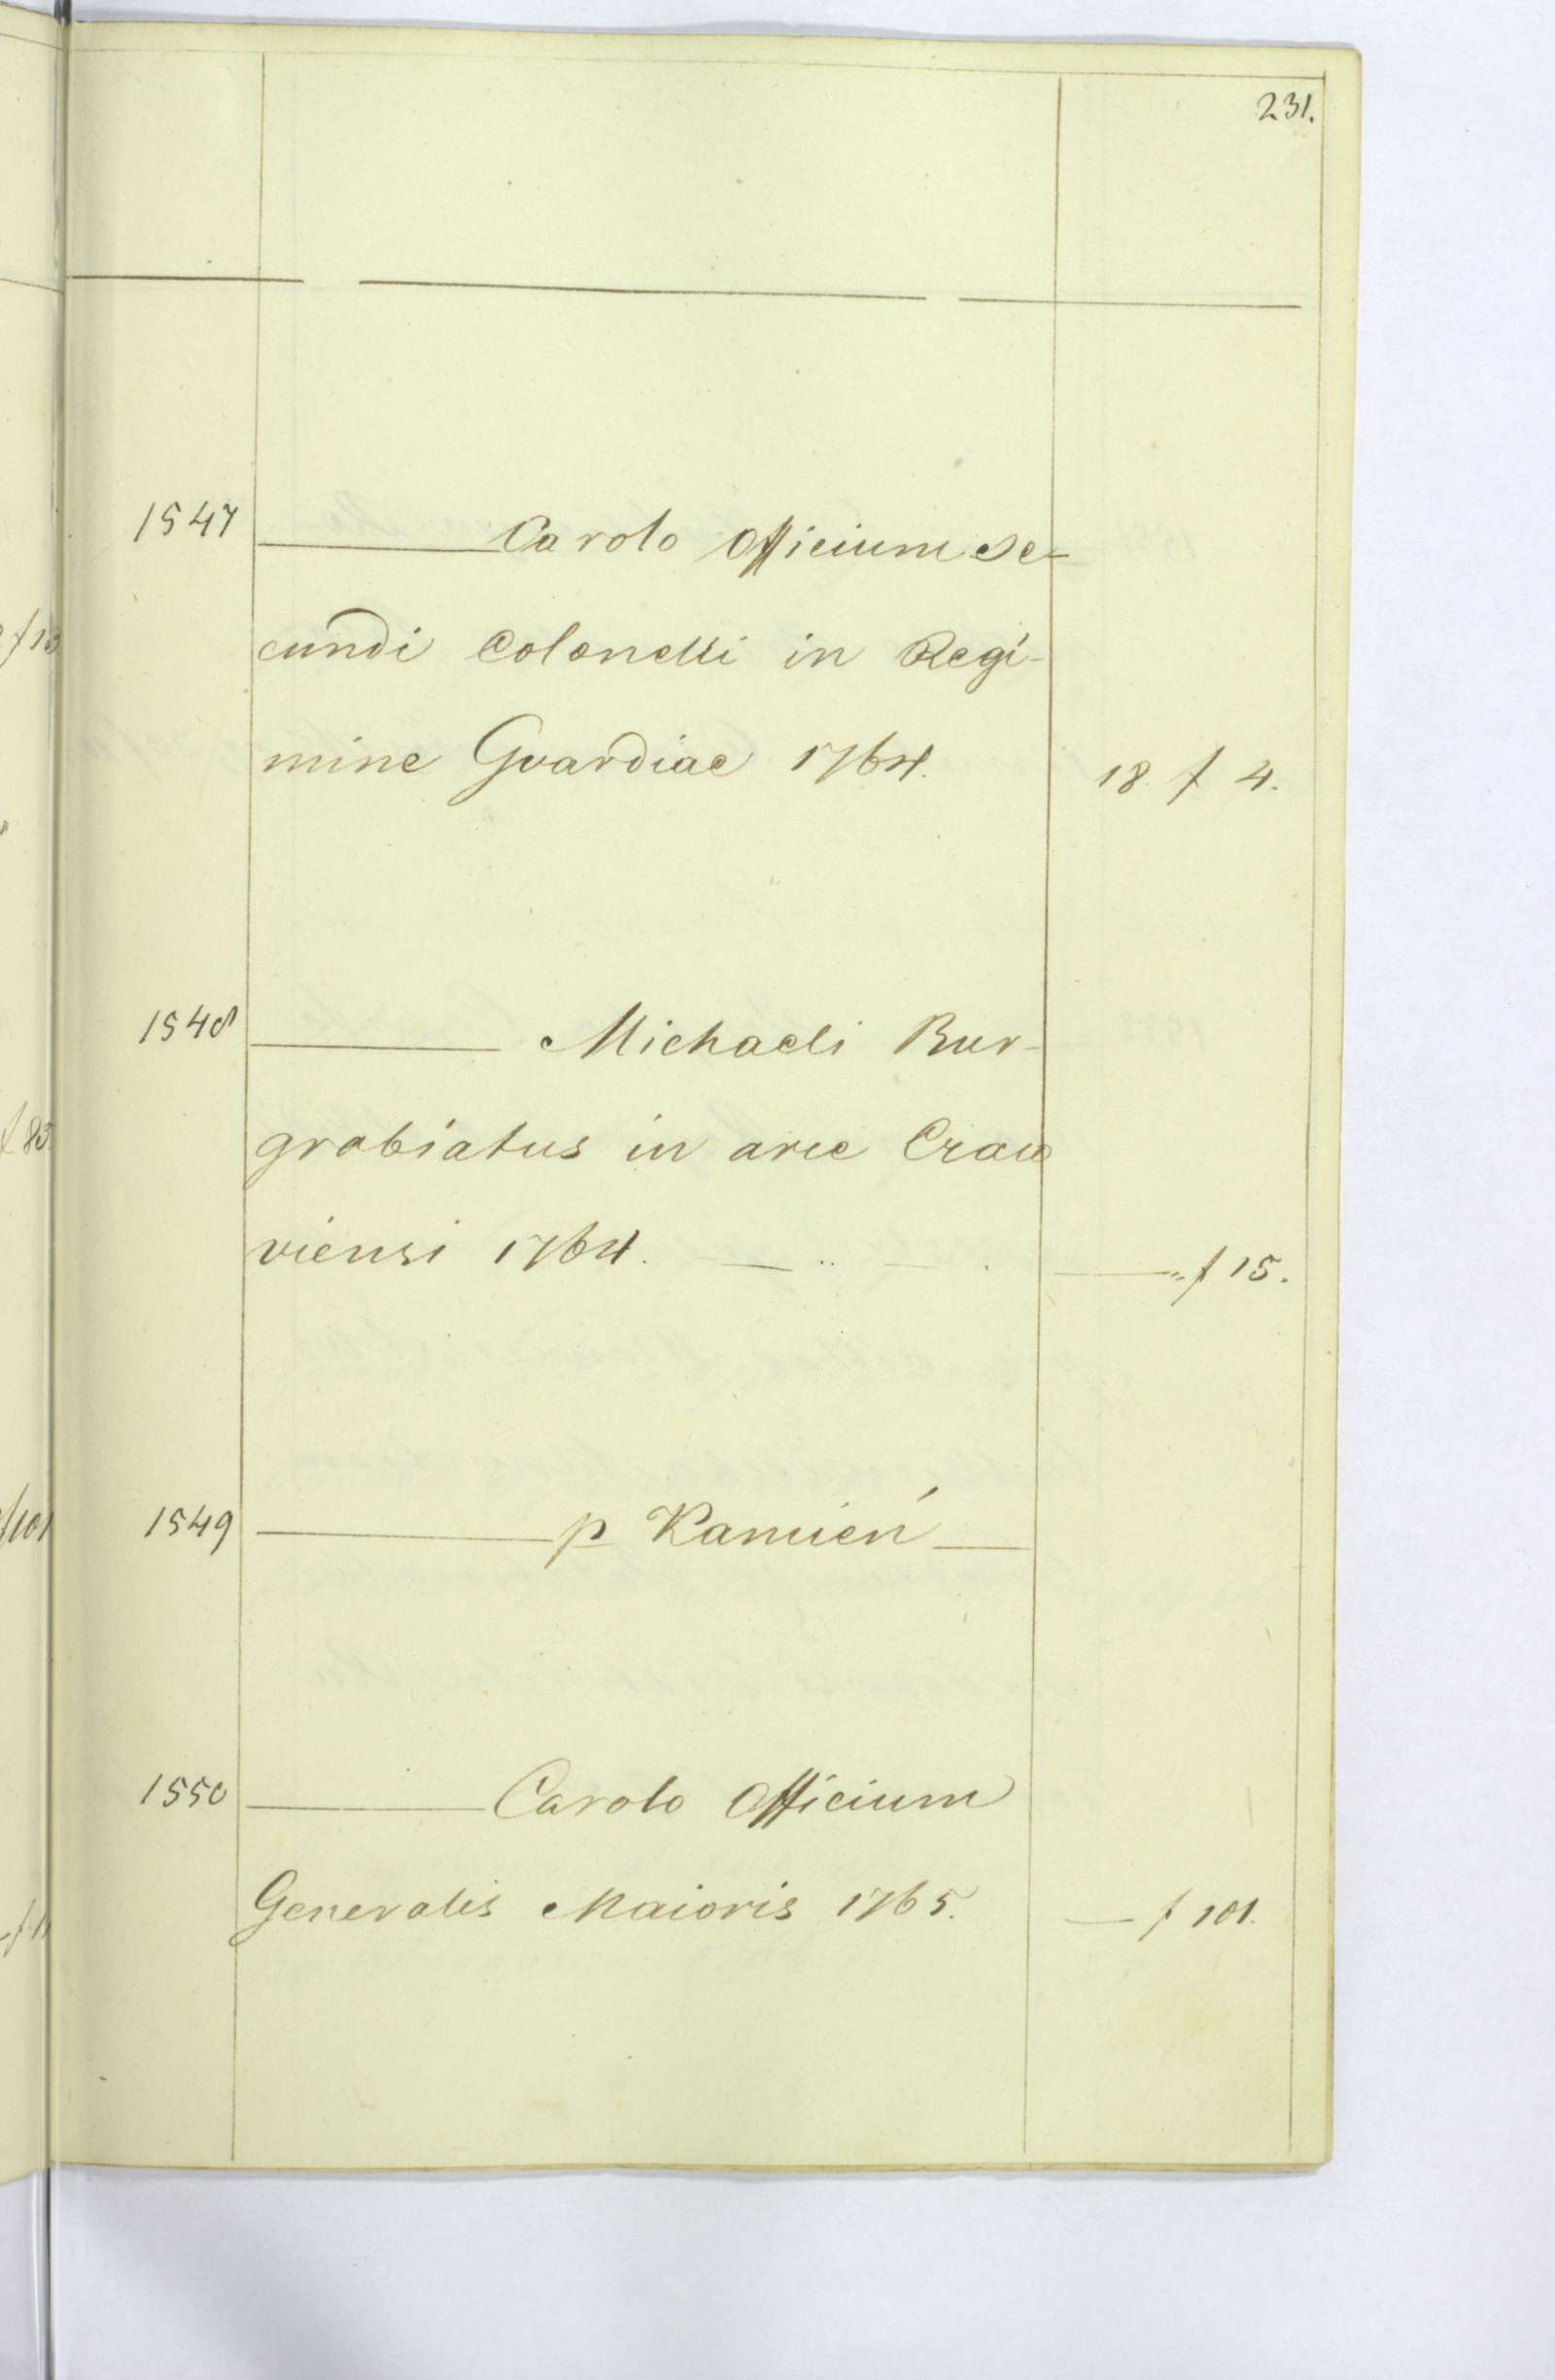 231.
1547 ——— Carolo Officium se-
cundi Colonelli in Regi-
mine Gvardiae 1764. 18. f 4.
1548 ——— Michaeli Bur-
grabiatus in arce Craco
viensi 1764. — .. — . ——„ f 15.
1549 ——— p Kamień —
1550 ——— Carolo Officium
Generalis Maioris 1765. — f 101.